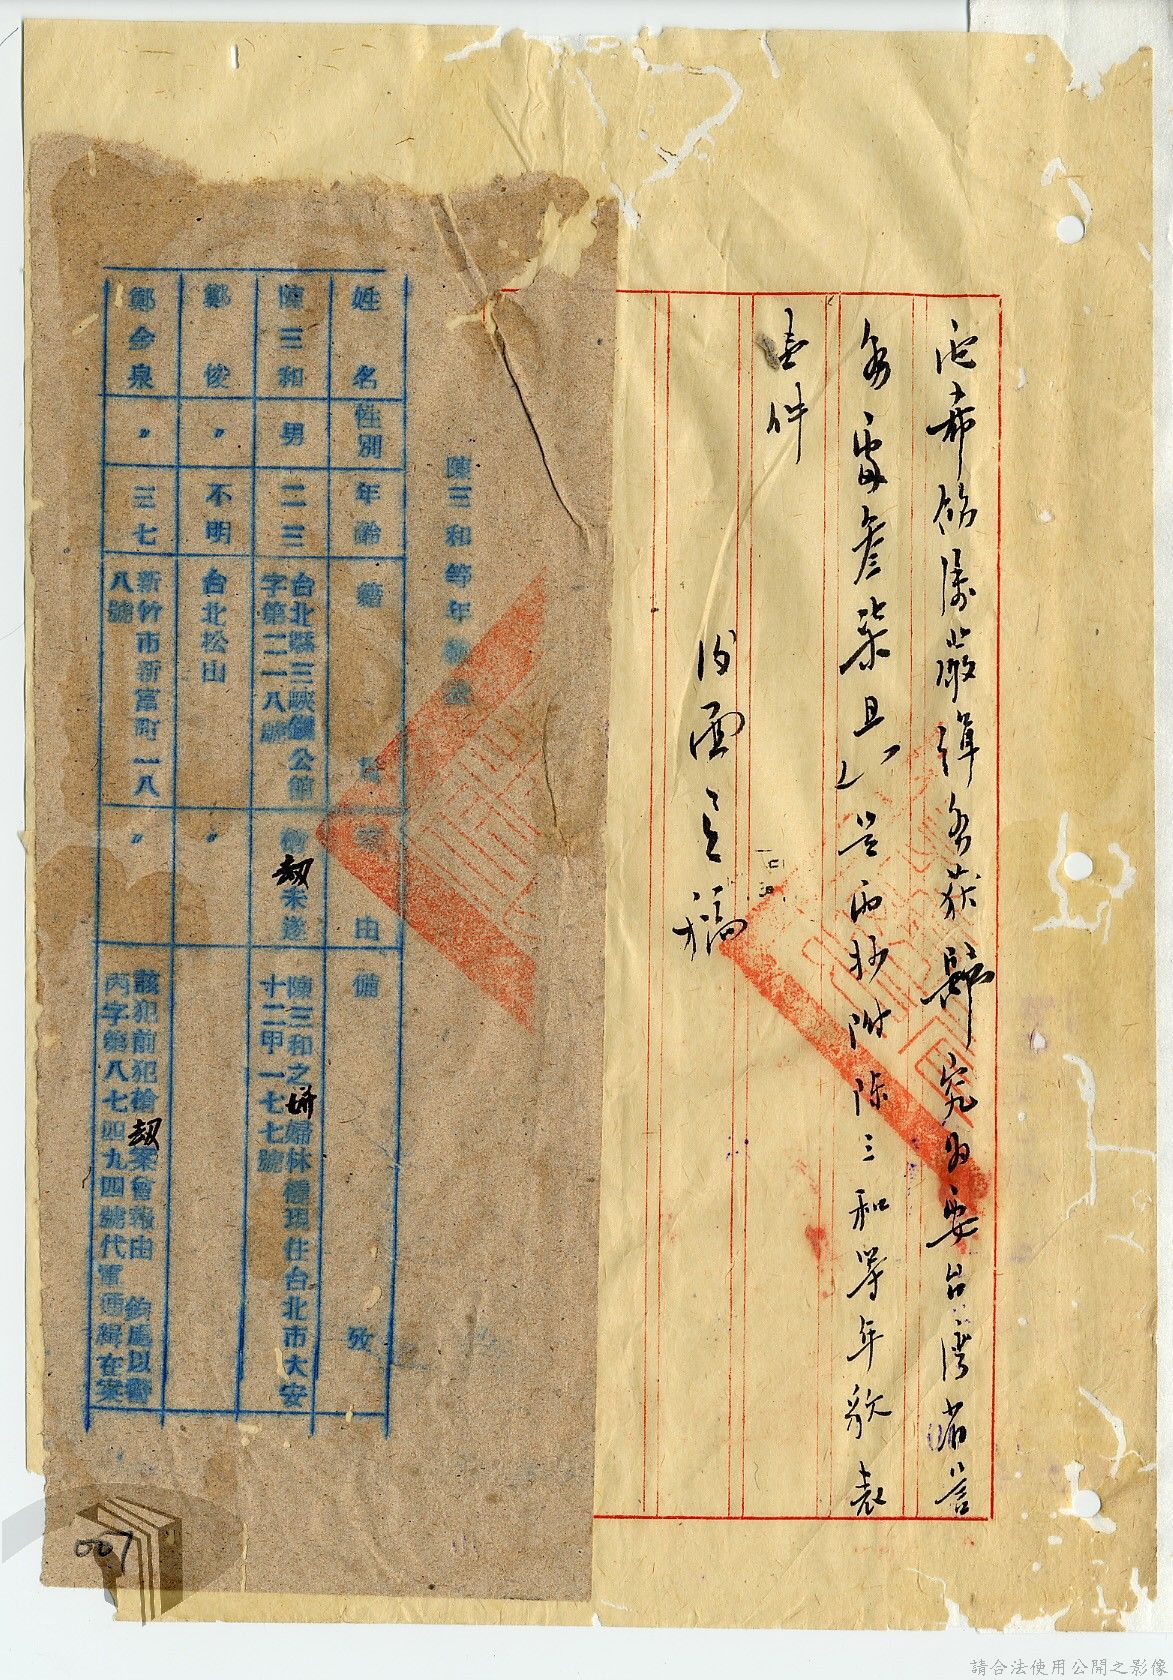 希飭屬嚴緝務获歸究為要台灣省警
務處叁柒 丑 兰丙抄附陈三和等年貌表
壹件
陳三和等年貌表
姓名 性別 年齡 籍貫 案由 備攷
陳三和 男 二三 台北縣三峽鎮公館字第二一八號 搶劫未遂 陳三和之姘婦林 現住台北市大安十二甲一七七號
鄭俊 〃 不明 台北松山 〃
鄭金泉 〃 三七 新竹市新富町一八八號 〃 該犯前犯搶劫案會報由 鈞處以警丙字第八七四九四號代電通緝在案
007
請合法使用公開之影像